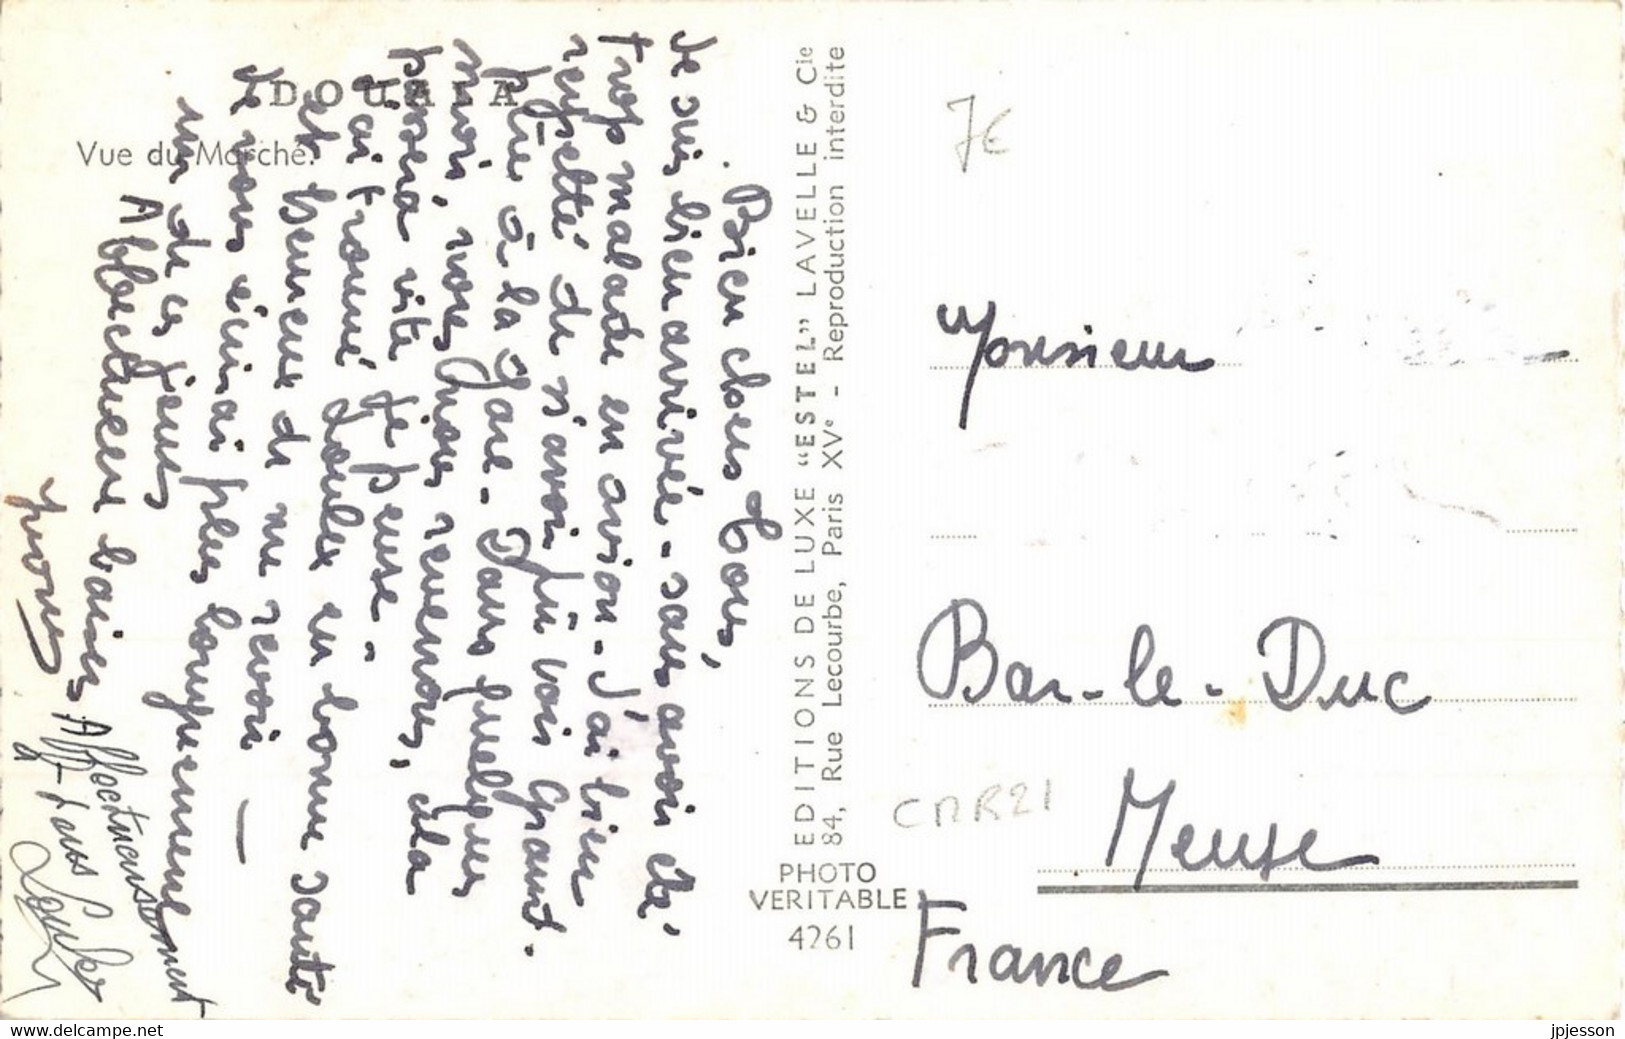 DOUALA
Vue du Marché.
Bien chers Tous,
Je suis bien arrivée - sans avoir été
trop malade en avion - J'ai bien
regretté de n'avoir pû voir Grant.
père à la gare - Dans quelques
mois, nous nous reverrons, cela
passera vite je pense -
J'ai trouvé Loulou en bonne santé
et heureux de me revoir -
Je vous écrirai plus longuement
un de ces jours
Affectueux baisers
Yvonne
Affectueusement
à tous Loulou
EDITIONS DE LUXE "ESTEL" LAVELLE & Cie
84, Rue Lecourbe, Paris XVe - Reproduction interdite
PHOTO
VERITABLE
4261
7€
Monsieur
Bar-le-Duc
CMR21
Meuse
France
www.delcampe.net
jpjesson